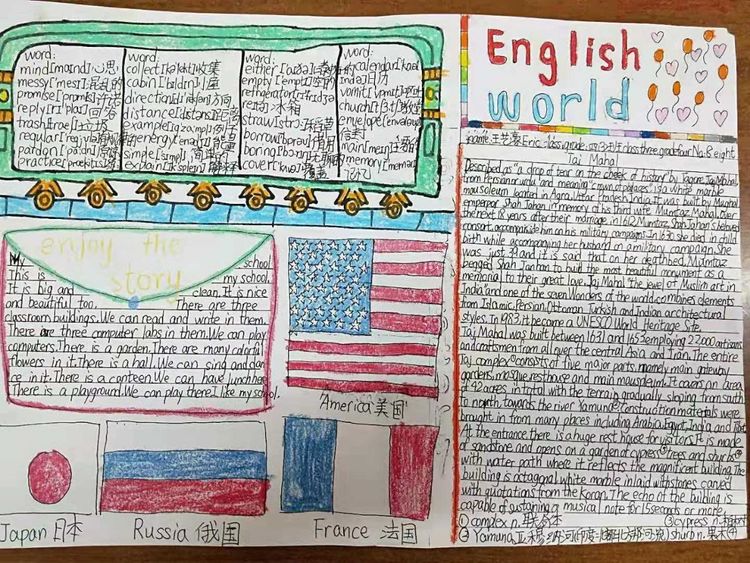 word:
mind[maɪnd]心思
messy[ˈmesɪ]混乱的
promise[ˈprɒmɪs]许诺
reply[rɪˈplaɪ]回答
trash[træʃ]垃圾
regular
pardon
practice
word:
collect[kəˈlekt]收集
cabin[ˈkæbɪn]
direction 方向
distance[ˈdɪstəns]距离
example[ɪgˈzɑːmpl]例
energy[ˈenədʒɪ]能量
simple[ˈsɪmpl]简单的
explain[ɪkˈspleɪn]解释
word:
either[ˈaɪðə]
empty[ˈemptɪ]空的
refrigerator
冰箱
straw[strɔː]稻草
borrow[ˈbɒrəʊ]借用
boring[ˈbɔːrɪŋ]
cover[ˈkʌvə]
覆盖
word:
calendar
日历
vomit[ˈvɒmɪt]
church[tʃɜːtʃ]教堂
envelope
信封
main[meɪn]主要的
memory
记忆
English
world
Eric class three grade four No.8 eight
Taj Mahal
Described as "a drop of tear on the cheek of history" by Tagore, Taj Mahal,
from Persian or urdu and meaning "crown of palaces", is a white marble
mausoleum located in Agra, Uttar Pradesh, India. It was built by Mughal
emperor Shah Jahan in memory of his third wife Mumtaz Mahal. Over
the next 18 years after their marriage, in 1612, Mumtaz Shah Jahan's beloved
consort, accompanied him on his military campaigns. In 1630, she died in child
birth while accompanying her husband on a military campaign. She
was just 39 and it is said that on her deathbed, Mumtaz
begged Shah Jahan to build the most beautiful monument as a
memorial to their great love. Taj Mahal, the jewel of Muslim art in
India and one of the seven Wonders of the world combines elements
from Islamic, Persian, Ottoman, Turkish and Indian architectural
styles. In 1983, it became a UNESCO World Heritage Site.
Taj Mahal was built between 1631 and 1653, employing 22000 artisans
and craftsmen from all over the central Asia and Iran. The entire
Taj complex① consists of five major parts, namely main gateway,
gardens, mosque, resthouse and main mausoleum. It covers an area
of 42 acres in total with the terrain gradually sloping from south
to north towards the river Yamuna② construction materials were
brought in from many places including Arabia, Egypt, India, and Tibet
At the entrance, there is a huge rest house for visitors. It is made
of sandstone and opens on a garden of cypress③ trees and shurbs④
with water path where it reflects the magnificent building. The
building is octagonal white marble inlaid with stones carved
with quotations from the Koran. The echo of the building is
capable of sustaining a musical note for 15 seconds or more.
① complex n. 联合体 ③ cypress n. 柏木
② Yamuna 亚穆纳河 ④ shurb n. 灌木
enjoy the
story
My school.
This is my school.
It is big and clean. It is nice
and beautiful too. There are three
classroom buildings. We can read and write in them.
There are three computer labs in them. We can play
computers. There is a garden. There are many colorful
flowers in it. There is a hall. We can sing and dan
ce in it. There is a canteen. We can have lunch here.
There is a playground. We can play there. I like my school.
"America 美国"
Japan 日本
Russia 俄国
France 法国